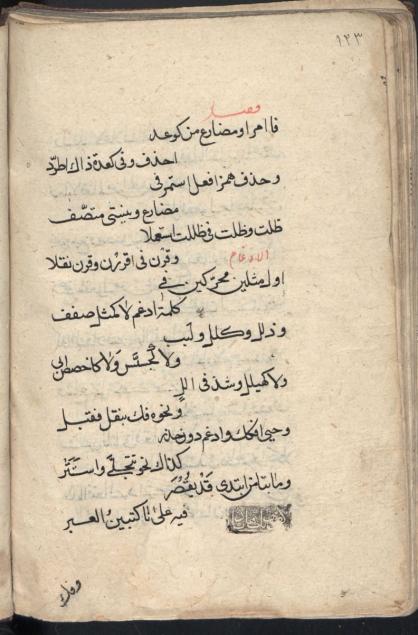 ١٢٣
فصل
فا امر او مضارع من كوعد
احذف وفى كعدة ذاك اطرد
وحذف همز افعل استمر فى
مضارع وبنيتى متصف
ظلت وظلت فى ظللت استعملا
وقرن فى اقررن وقرن نقلا
الادغام
اول مثلين محركين فے
كلمة ادغم لا كمثل صفف
وذلل وكلل ولبب
ولا كجسس ولا كاخصص ابى
ولا كهيلل وشذ فى الل
ونحوه فك بنقل فقبل
وحيي افكك وادغم دون حذر
كذاك نحو تتجلى واستتر
وما بتا ابتدى قد يقتصر
فيه على تا كتبين العبر
وفك